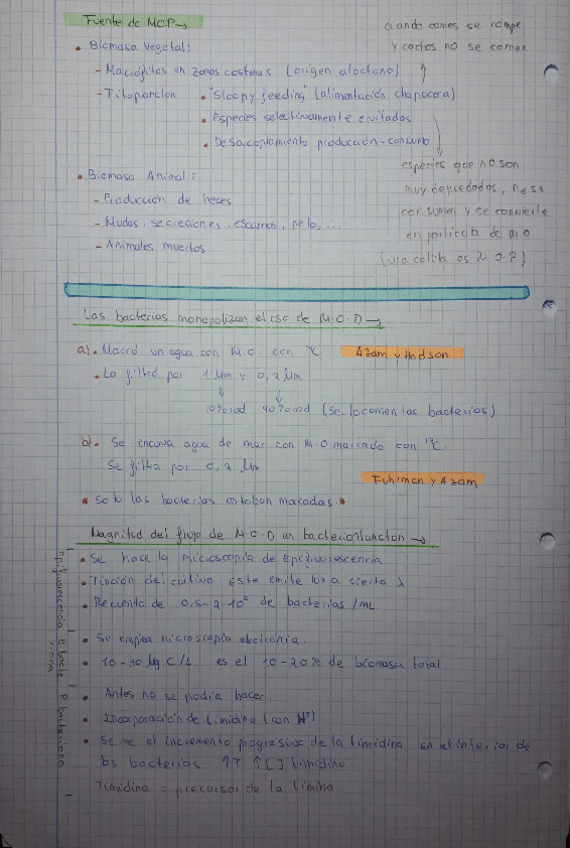 Fuente de M.O.P →
cuando comes se rompe
y cachos no se comen
• Biomasa Vegetal:
- Macrófitas en zonas costeras (origen aloctono)
- Fitoplancton • "Sloopy feeding" (alimentación chapucera)
• Especies selectivamente evitadas
• Desacoplamiento producción-consumo
especies que no son
muy depredadas, no se
consumen y se convierte
en partícula de M.O
(una celula es M.O.P)
• Biomasa Animal:
- Producción de heces
- Mudas, secreciones, escamas, pelos...
- Animales muertos
Las bacterias monopolizan el uso de M.O.D →
a) • Marcó un agua con M.O con ¹⁴C Azam y Hodson
• Lo filtró por 1 µm y 0,2 µm
10% rad 90% rad (se lo comen las bacterias)
b) • Se encuva agua de mar con M.O marcada con ¹⁴C.
Se filtra por 0,2 µm
Fuhrman y Azam
* solo las bacterias estaban marcadas *
Magnitud del flujo de M.O.D en bacterioplancton →
• Se hace la microscopía de Epifluorescencia
• Tinción del cultivo este emite luz a cierta λ
• Recuento de 0,5-2·10⁶ de bacterias/mL
• Se emplea microscopio electronico.
• 10-30 µg C/L es el 10-20% de biomasa total
• Antes no se podía hacer.
• Incorporación de timidina (con H³)
• Se ve el incremento progresivo de la timidina en el interior de
las bacterias ↑T ↑[ ] timidina.
Timidina = precursor de la timina
Epifluorescencia
B. bacteriana
P. bacteriana